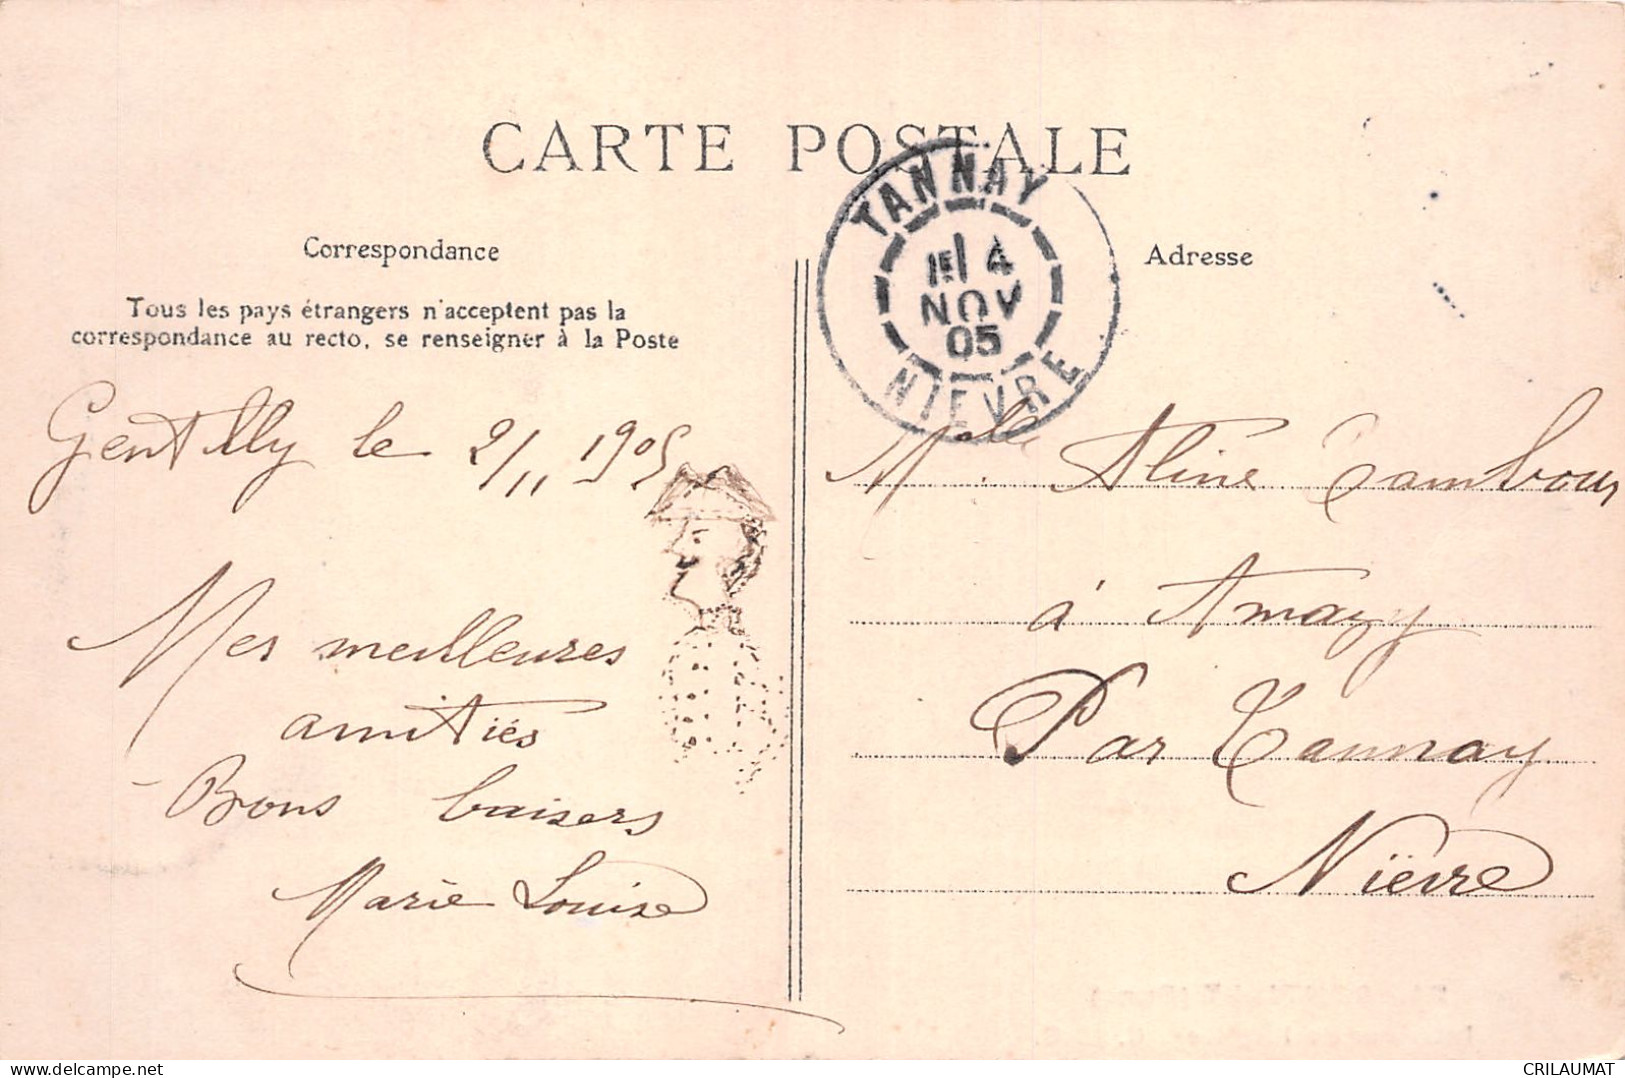 CARTE POSTALE
Correspondance
Tous les pays étrangers n'acceptent pas la
correspondance au recto, se renseigner à la Poste
Gentilly le 2/11 1905
Mes meilleures
amitiés
Bons baisers
Marie Louise
TANNAY
4
NOV
05
NIEVRE
Adresse
Melle Aline Tambour
à Amazy
Par Tannay
Nièvre
CRILAUMAT